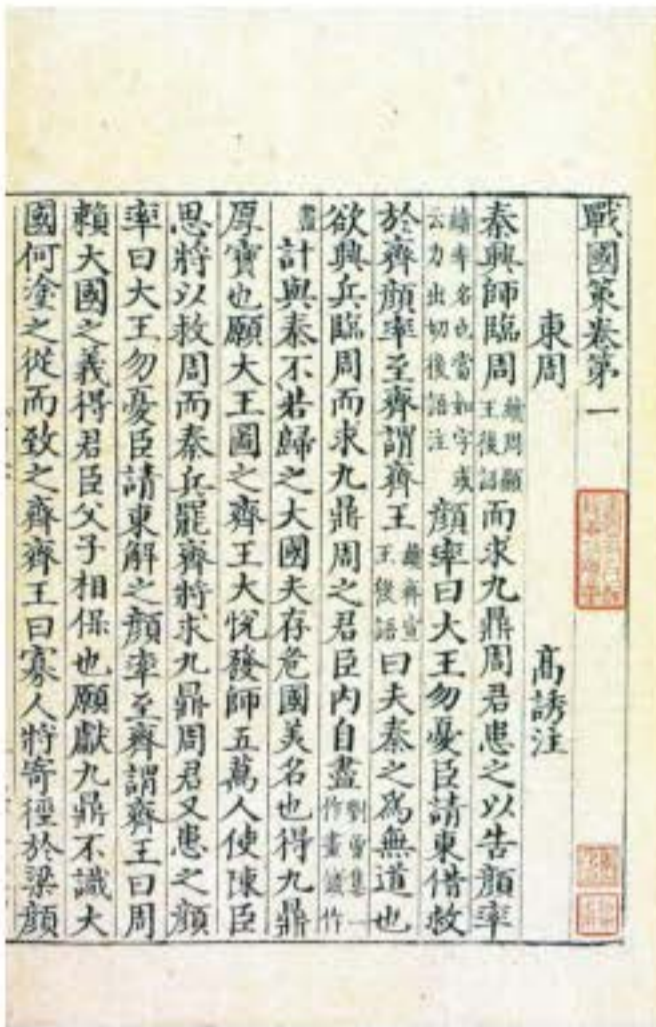 戰國策卷第一
東周 高誘注
秦興師臨周續周顯王後語而求九鼎周君患之以告顏率
續率名也當如字或云力出切後語注顏率曰大王勿憂臣請東借救
於齊顏率至齊謂齊王續齊宣王後語曰夫秦之爲無道也
欲興兵臨周而求九鼎周之君臣內自盡劉曾集一作畫續作
畫計與秦不若歸之大國夫存危國美名也得九鼎
厚寶也願大王圖之齊王大悅發師五萬人使陳臣
思將以救周而秦兵罷齊將求九鼎周君又患之顏
率曰大王勿憂臣請東解之顏率至齊謂齊王曰周
賴大國之義得君臣父子相保也願獻九鼎不識大
國何塗之從而致之齊齊王曰寡人將寄徑於梁顏